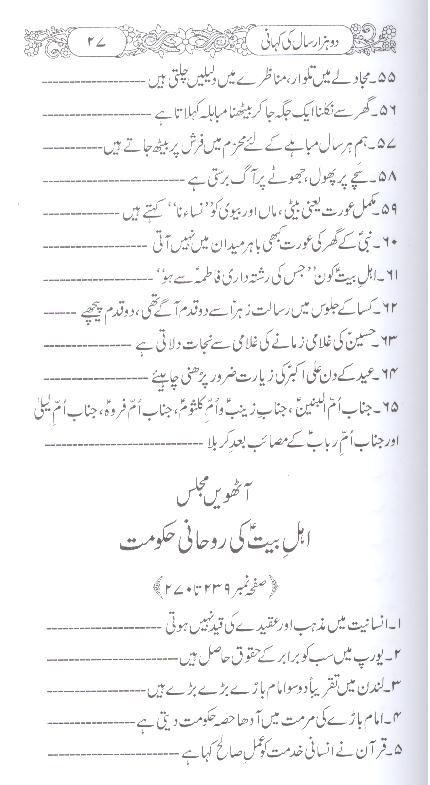 دو ہزار سال کی کہانی
۲۷
۵۵۔ مجادلے میں تلوار، مناظرے میں دلیلیں چلتی ہیں ------------------
۵۶۔ گھر سے نکلنا ایک جگہ جا کر بیٹھنا مباہلہ کہلاتا ہے ---------------
۵۷۔ ہم ہر سال مباہلے کے لئے محرم میں فرش پر بیٹھ جاتے ہیں ----------
۵۸۔ سچے پر پھول، جھوٹے پر آگ برستی ہے ----------------------
۵۹۔ مکمل عورت یعنی بیٹی، ماں اور بیوی کو ”نساءنا“ کہتے ہیں -------------
۶۰۔ نبیؐ کے گھر کی عورت کبھی باہر میدان میں نہیں آتی ------------------
۶۱۔ اہلِ بیتؑ کون ”جس کی رشتہ داری فاطمہؑ سے ہو“ -------------------
۶۲۔ کسا کے جلوس میں رسالت زہراؑ سے دو قدم آگے تھی، دو قدم پیچھے -----
۶۳۔ حسینؑ کی غلامی زمانے کی غلامی سے نجات دلاتی ہے ---------------
۶۴۔ عید کے دن علی اکبرؑ کی زیارت ضرور پڑھنی چاہیئے -----------------
۶۵۔ جناب اُمّ البنینؑ، جنابِ زینبؑ و اُمِّ کلثومؑ، جناب اُمّ فروہؑ، جناب اُمّ لیلیٰؑ
اور جناب اُمّ ربابؑ کے مصائب بعدِ کربلا ----------------------
آٹھویں مجلس
اہلِ بیتؑ کی روحانی حکومت
﴿صفحہ نمبر ۲۳۹ تا ۲۷۰﴾
۱۔ انسانیت میں مذہب اور عقیدے کی قید نہیں ہوتی --------------------
۲۔ یورپ میں سب کو برابر کے حقوق حاصل ہیں -----------------------
۳۔ لندن میں تقریباً دو سو امام باڑے بڑے بڑے ہیں ------------------
۴۔ امام باڑے کی مرمت میں آدھا حصہ حکومت دیتی ہے ----------------
۵۔ قرآن نے انسانی خدمت کو عملِ صالح کہا ہے -----------------------